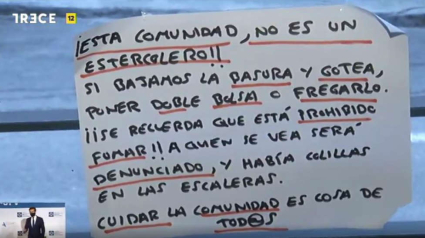 TRECE 12
¡ESTA COMUNIDAD, NO ES UN
ESTERCOLERO!!
SI BAJAMOS LA BASURA Y GOTEA,
PONER DOBLE BOLSA O FREGARLO.
¡¡SE RECUERDA QUE ESTÁ PROHIBIDO
FUMAR!! A QUIEN SE VEA SERÁ
DENUNCIADO, Y HABÍA COLILLAS
EN LAS ESCALERAS.
CUIDAR LA COMUNIDAD ES COSA DE
TOD@S